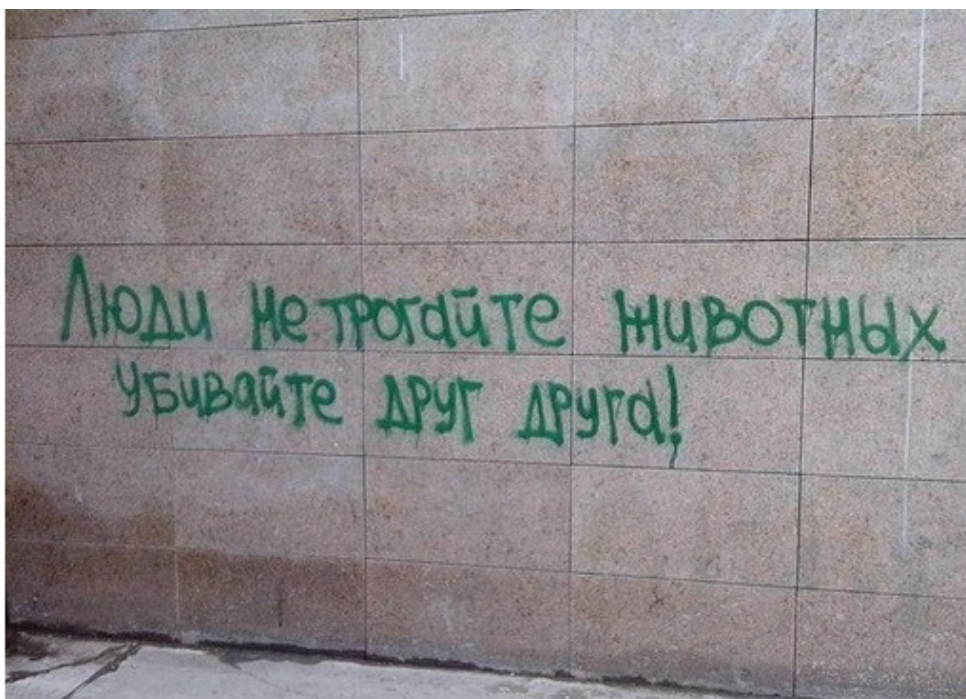 Люди не трогайте животных
Убивайте друг друга!